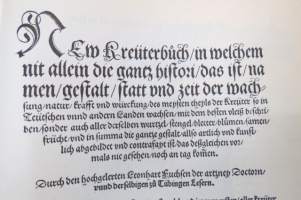 New Kreüterbůch/in welchem
nit allein die gantz histori/das ist/na
men/gestalt/statt vnd zeit der wach
sung/natur/krafft vnd würckung/des meysten theyls der Kreüter so in
Teütschen vnnd andern Landen wachsen/mit dem besten vleiß beschri
ben/sonder auch aller derselben wurtzel/stengel/bletter/blůmen/samen/
frücht/vnd in summa die gantze gestalt/allso artlich vnd kunst
lich abgebildet vnd contrafayt ist/das deßgleichen vor
mals nie gesehen/noch an tag komen.
Durch den hochgelerten Leonhart Fuchsen der artzney Doctorn/
vnnd derselbigen zů Tübingen Lesern.